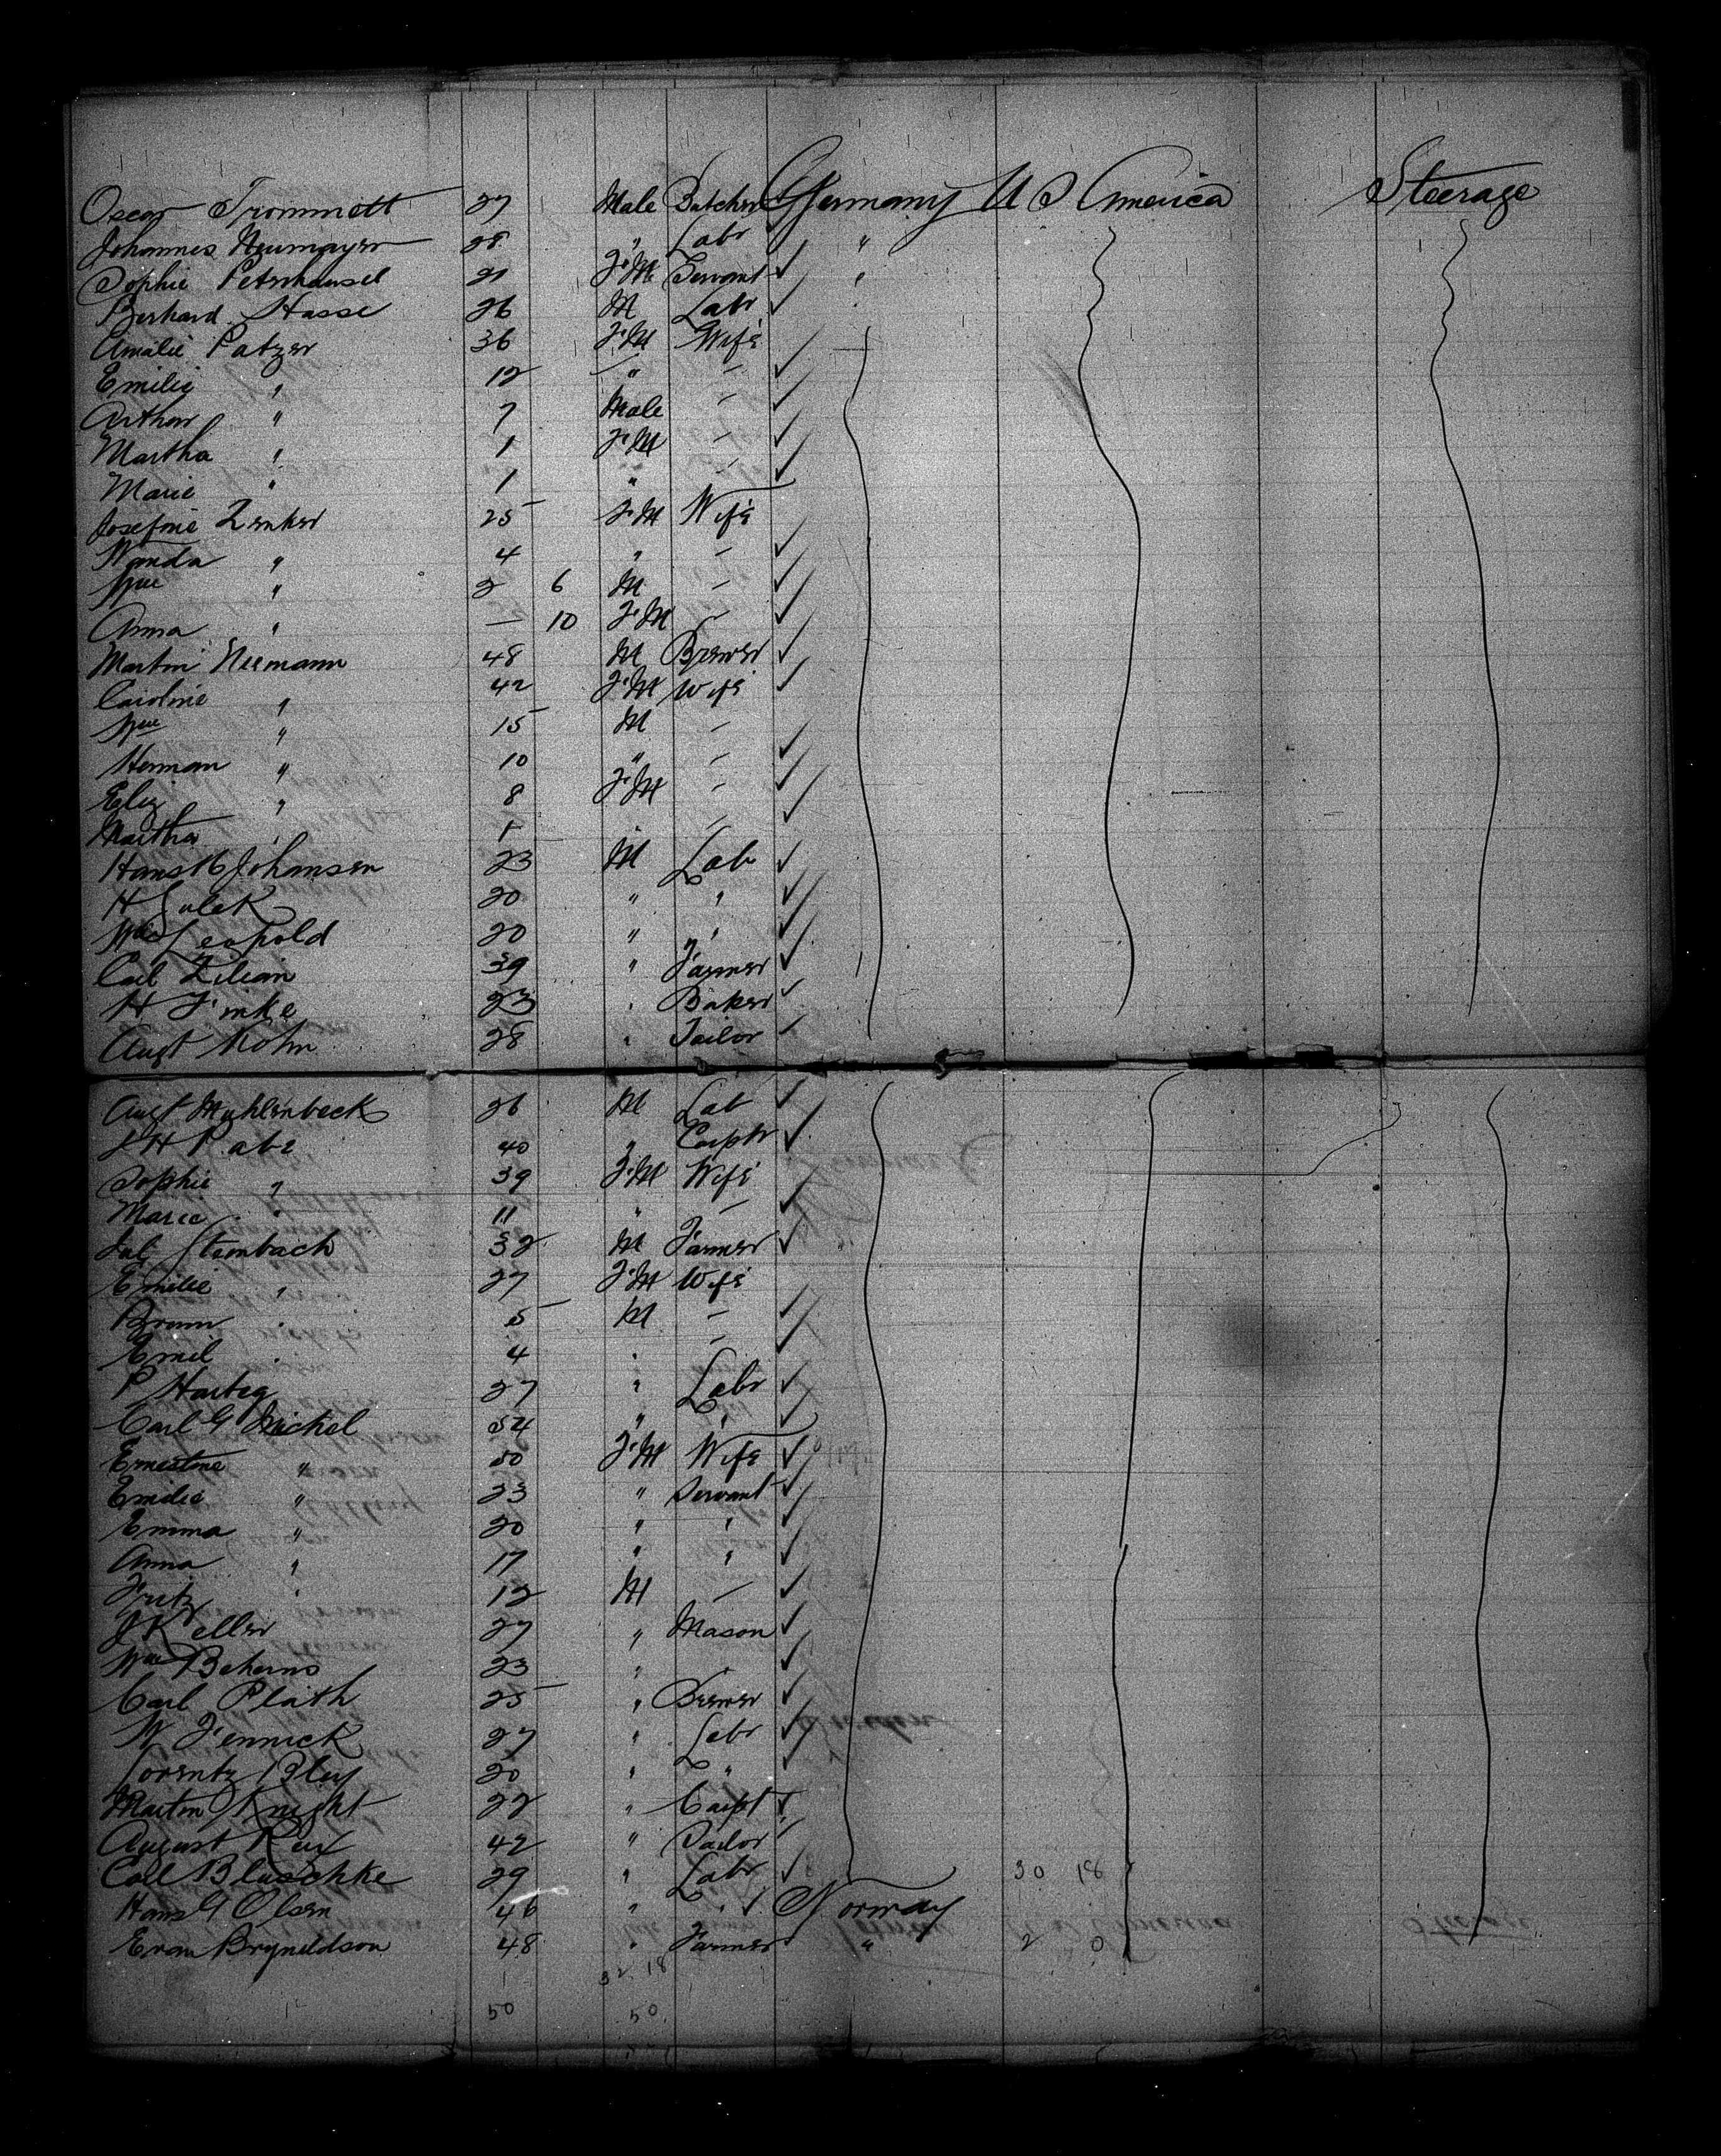 Oscar Trommott 27 Male Butcher Germany U S America Steerage
Johannes Neumayer 28 " Labr "
Sophie Petershansel 21 FM Servant "
Berhard Hasse 26 M Labr
Amalie Patzer 36 FM Wife
Emilie " 12 " —
Arthur " 7 Male —
Martha " 1 FM —
Marie " 1 " —
Josefine Zenker 25 FM Wife
Wanda " 4 " —
Wm " 2 6 M —
Anna " — 10 FM —
Martin Niemann 48 M Brewer
Caroline " 42 FM Wife
Wm " 15 M —
Herman " 10 " —
Eliz " 8 FM —
Martha " —
Hans Johansen 23 M Lab
H 20 " "
Wm Leopold 20 " "
Carl Zilian 39 " Farmer
H Finke 23 " Baker
Augt Kohn 28 " Tailor
Augt Muhlenbeck 26 M Lab
H Pabz 40 " Carptr
Sophie " 39 FM Wife
Marie " 11 " —
Jul Steinbach 32 M Farmer
Emilie " 27 FM Wife
Brunn " 5 M —
Emil " 4 " —
P Harteg 27 " Labr
Carl G Michel 54 " "
Ernestine " 50 FM Wife
Emilie " 23 " Servant
Emma " 20 " "
Anna " 17 " "
Fritz " 12 M —
J Keller 27 " Mason
Wm Beherns 23 "
Carl Plath 25 " Brewer
W Fennick 27 " Labr
Lorentz Bley 20 " "
Martin Knight 22 " Carpt
August Rux 42 " Sailor
Carl Blaschke 29 " Labr 30 18
Hans G Olsen 46 " " Norway
Evan Bryneldson 48 " Farmer " 2 0
32 18
50 50